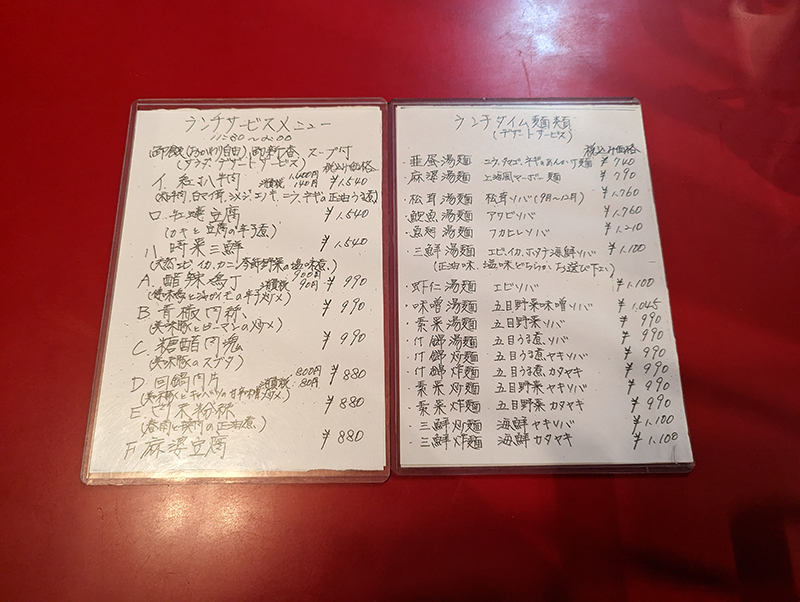 ランチサービスメニュー
11:30〜2:00
御飯(おかわり自由) 御新香 スープ付
(サラダ デザートサービス) 税込み価格
イ. 紅扒牛肉 1,400円 消費税 140円 ¥1,540
ロ. 牡蠣豆腐 ¥1,540
(カキと豆腐の辛子煮)
ハ 時菜三鮮 ¥1,540
(天然エビ、イカ、カニ、季節野菜の塩味煮)
A. 醋辣鶏丁 900円 消費税 90円 ¥990
B 青椒肉絲 ¥990
(美味豚とピーマンの炒メ)
C. 糖醋肉塊 ¥990
(美味豚のスブタ)
D 回鍋肉片 800円 消費税 80円 ¥880
(美味豚とキャベツの甘辛味噌炒メ)
E ¥880
F 麻婆豆腐 ¥880
ランチタイム麺類
(デザートサービス)
税込み価格
湯麺 ニラ、タマゴ、ネギのあんかけ麺 ¥740
・麻婆湯麺 上海風マーボー麺 ¥790
・松茸湯麺 松茸ソバ(9月〜12月) ¥1,760
・鮑魚湯麺 アワビソバ ¥1,760
・魚翅湯麺 フカヒレソバ ¥1,210
・三鮮湯麺 エビ、イカ、ホタテ海鮮ソバ ¥1,100
(正油味、塩味どちらかお選び下さい)
・虾仁湯麺 エビソバ ¥1,100
・味噌湯麺 五目野菜味噌ソバ ¥1,045
・素菜湯麺 五目野菜ソバ ¥990
・什錦湯麺 五目うま煮ソバ ¥990
・什錦炒麺 五目うま煮ヤキソバ ¥990
・什錦炸麺 五目うま煮カタヤキ ¥990
・素菜炒麺 五目野菜ヤキソバ ¥990
・素菜炸麺 五目野菜カタヤキ ¥990
・三鮮炒麺 海鮮ヤキソバ ¥1,100
・三鮮炸麺 海鮮カタヤキ ¥1,100